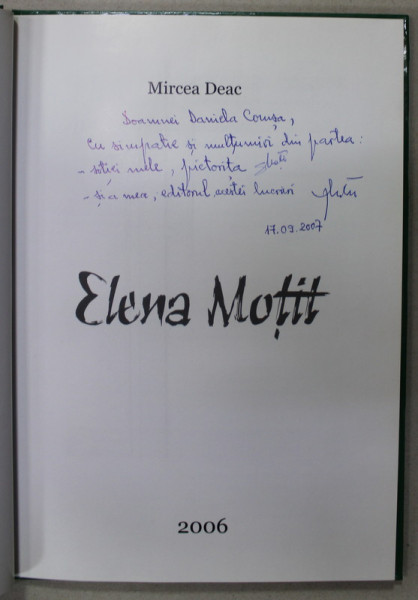 Mircea Deac
Doamnei Daniela Coruşa,
Cu simpatie şi mulţumiri din partea:
- soţiei mele, pictoriţa
- şi a mea, editorul acestei lucrări
17.09.2007
Elena Moţit
2006